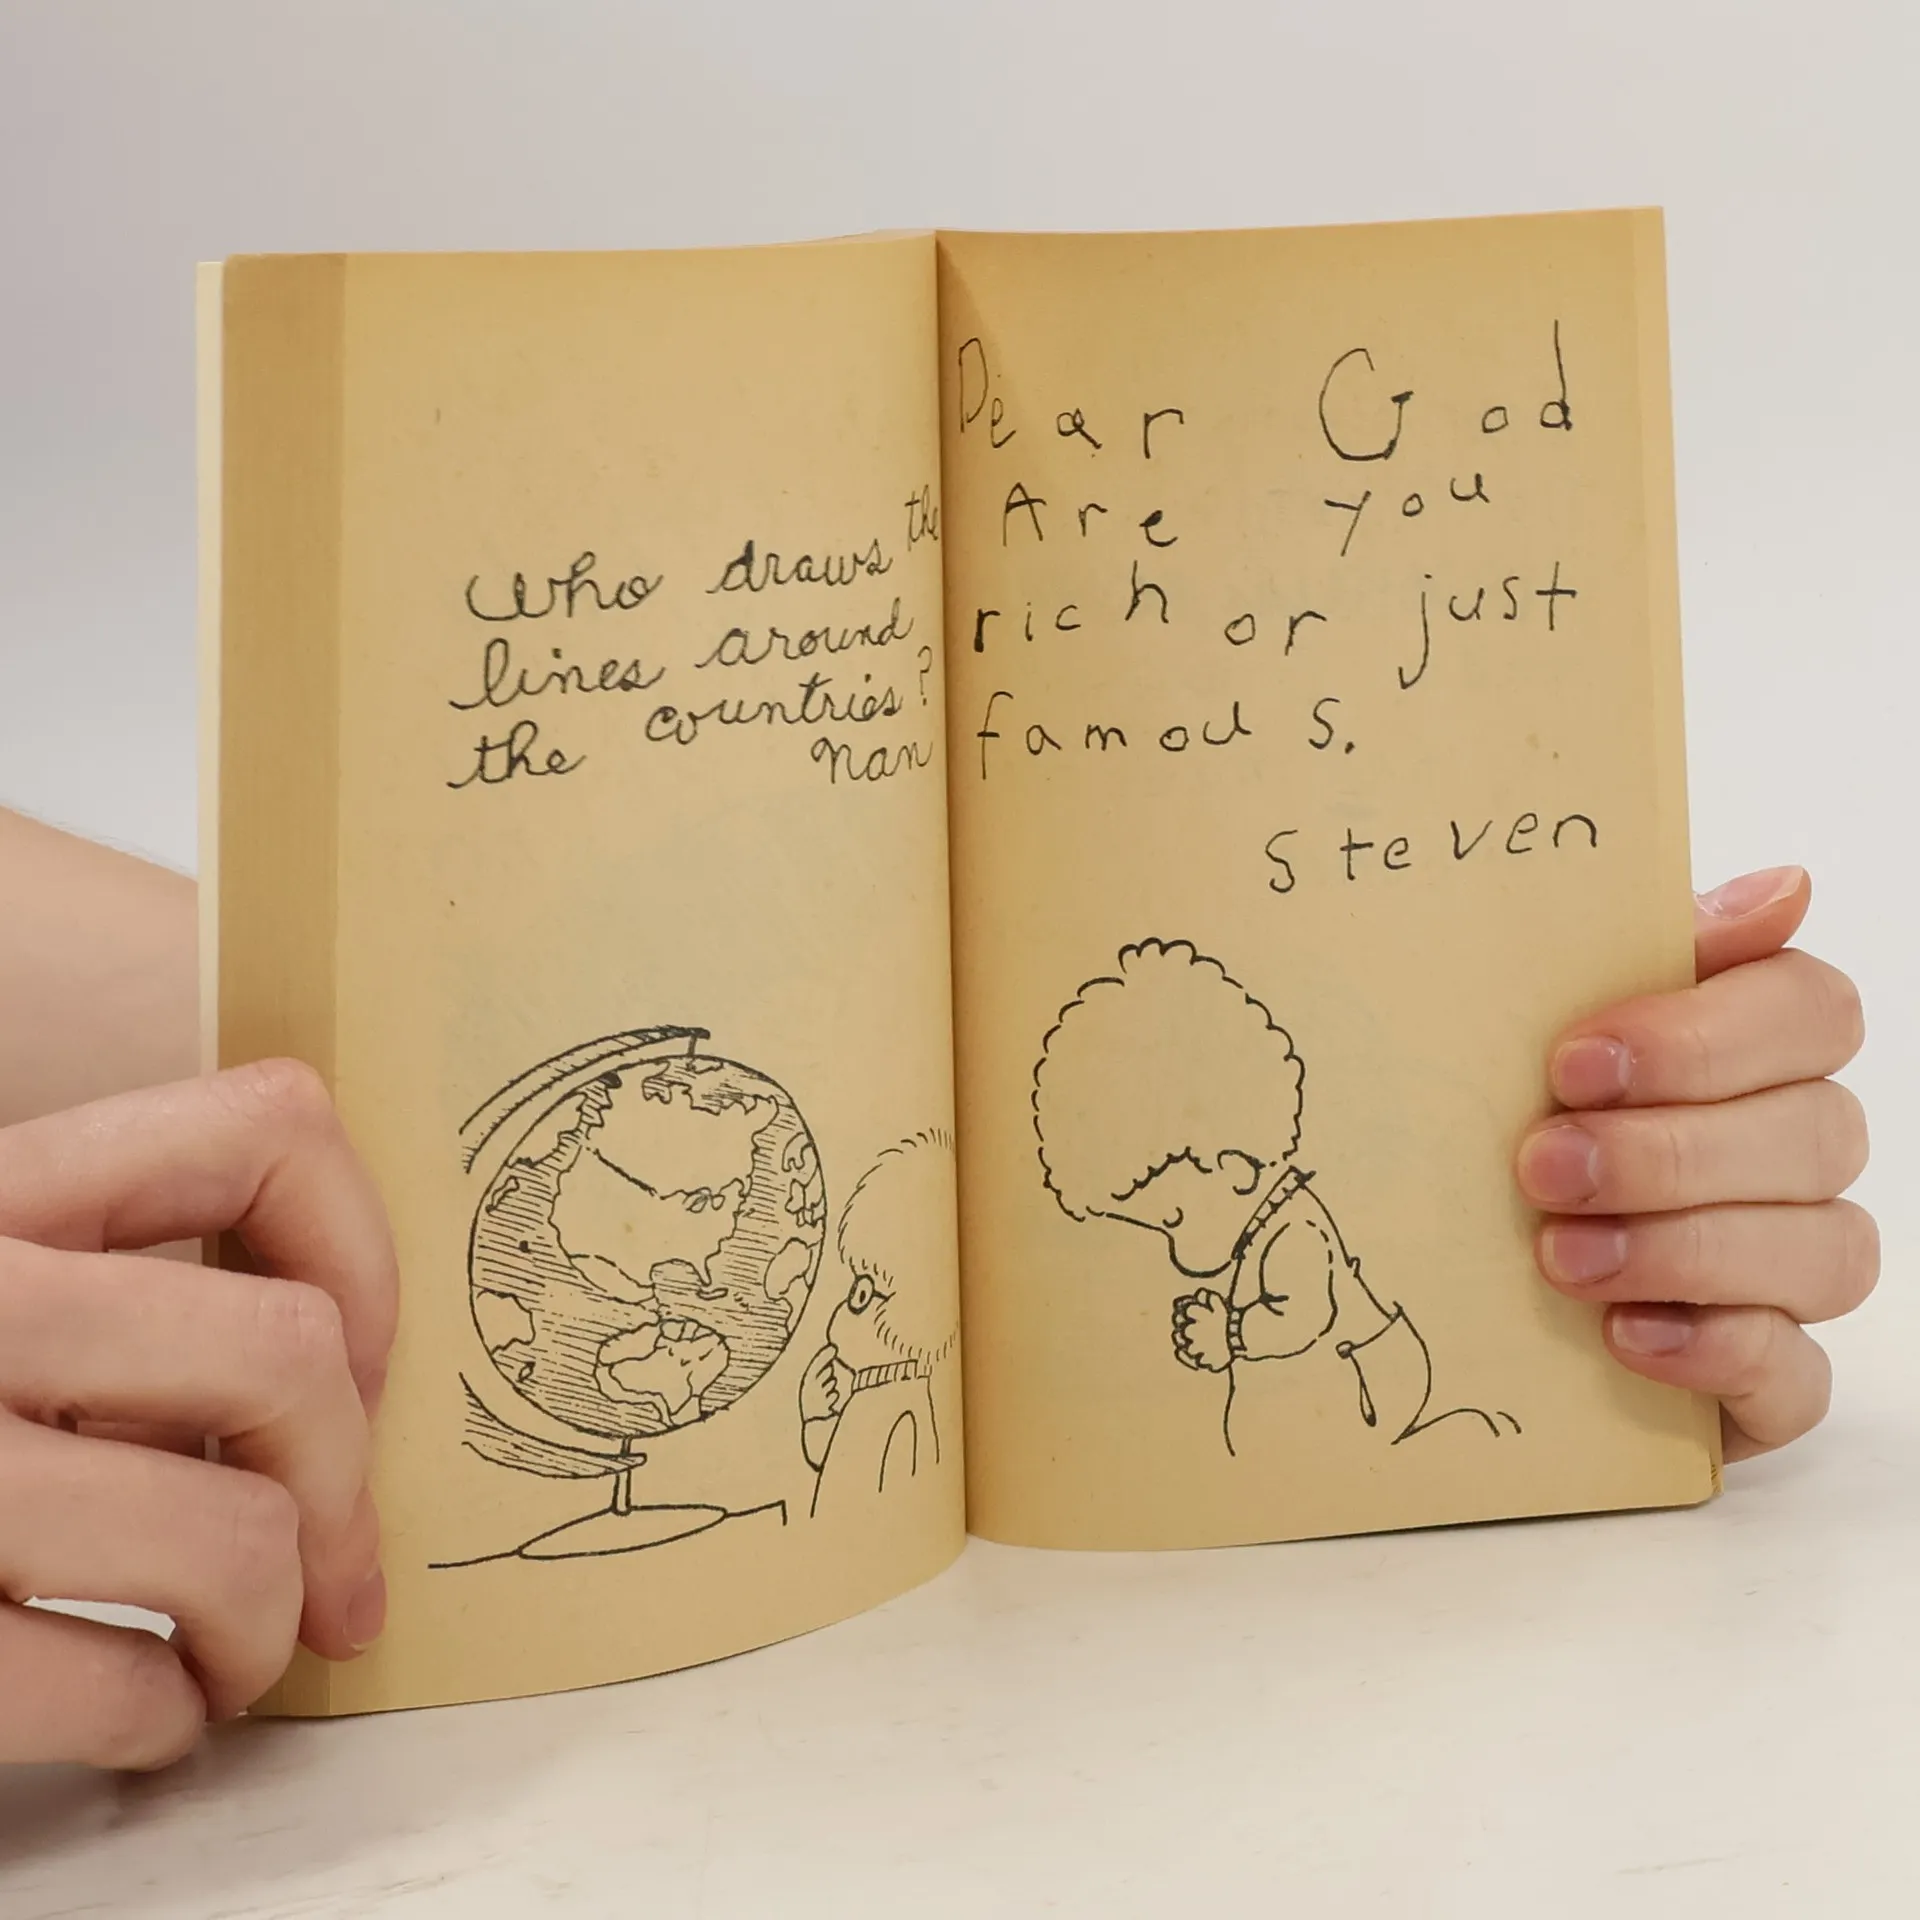 Who draws the
lines around
the countries?
Nan
Dear God
Are you
rich or just
famous.
Steven